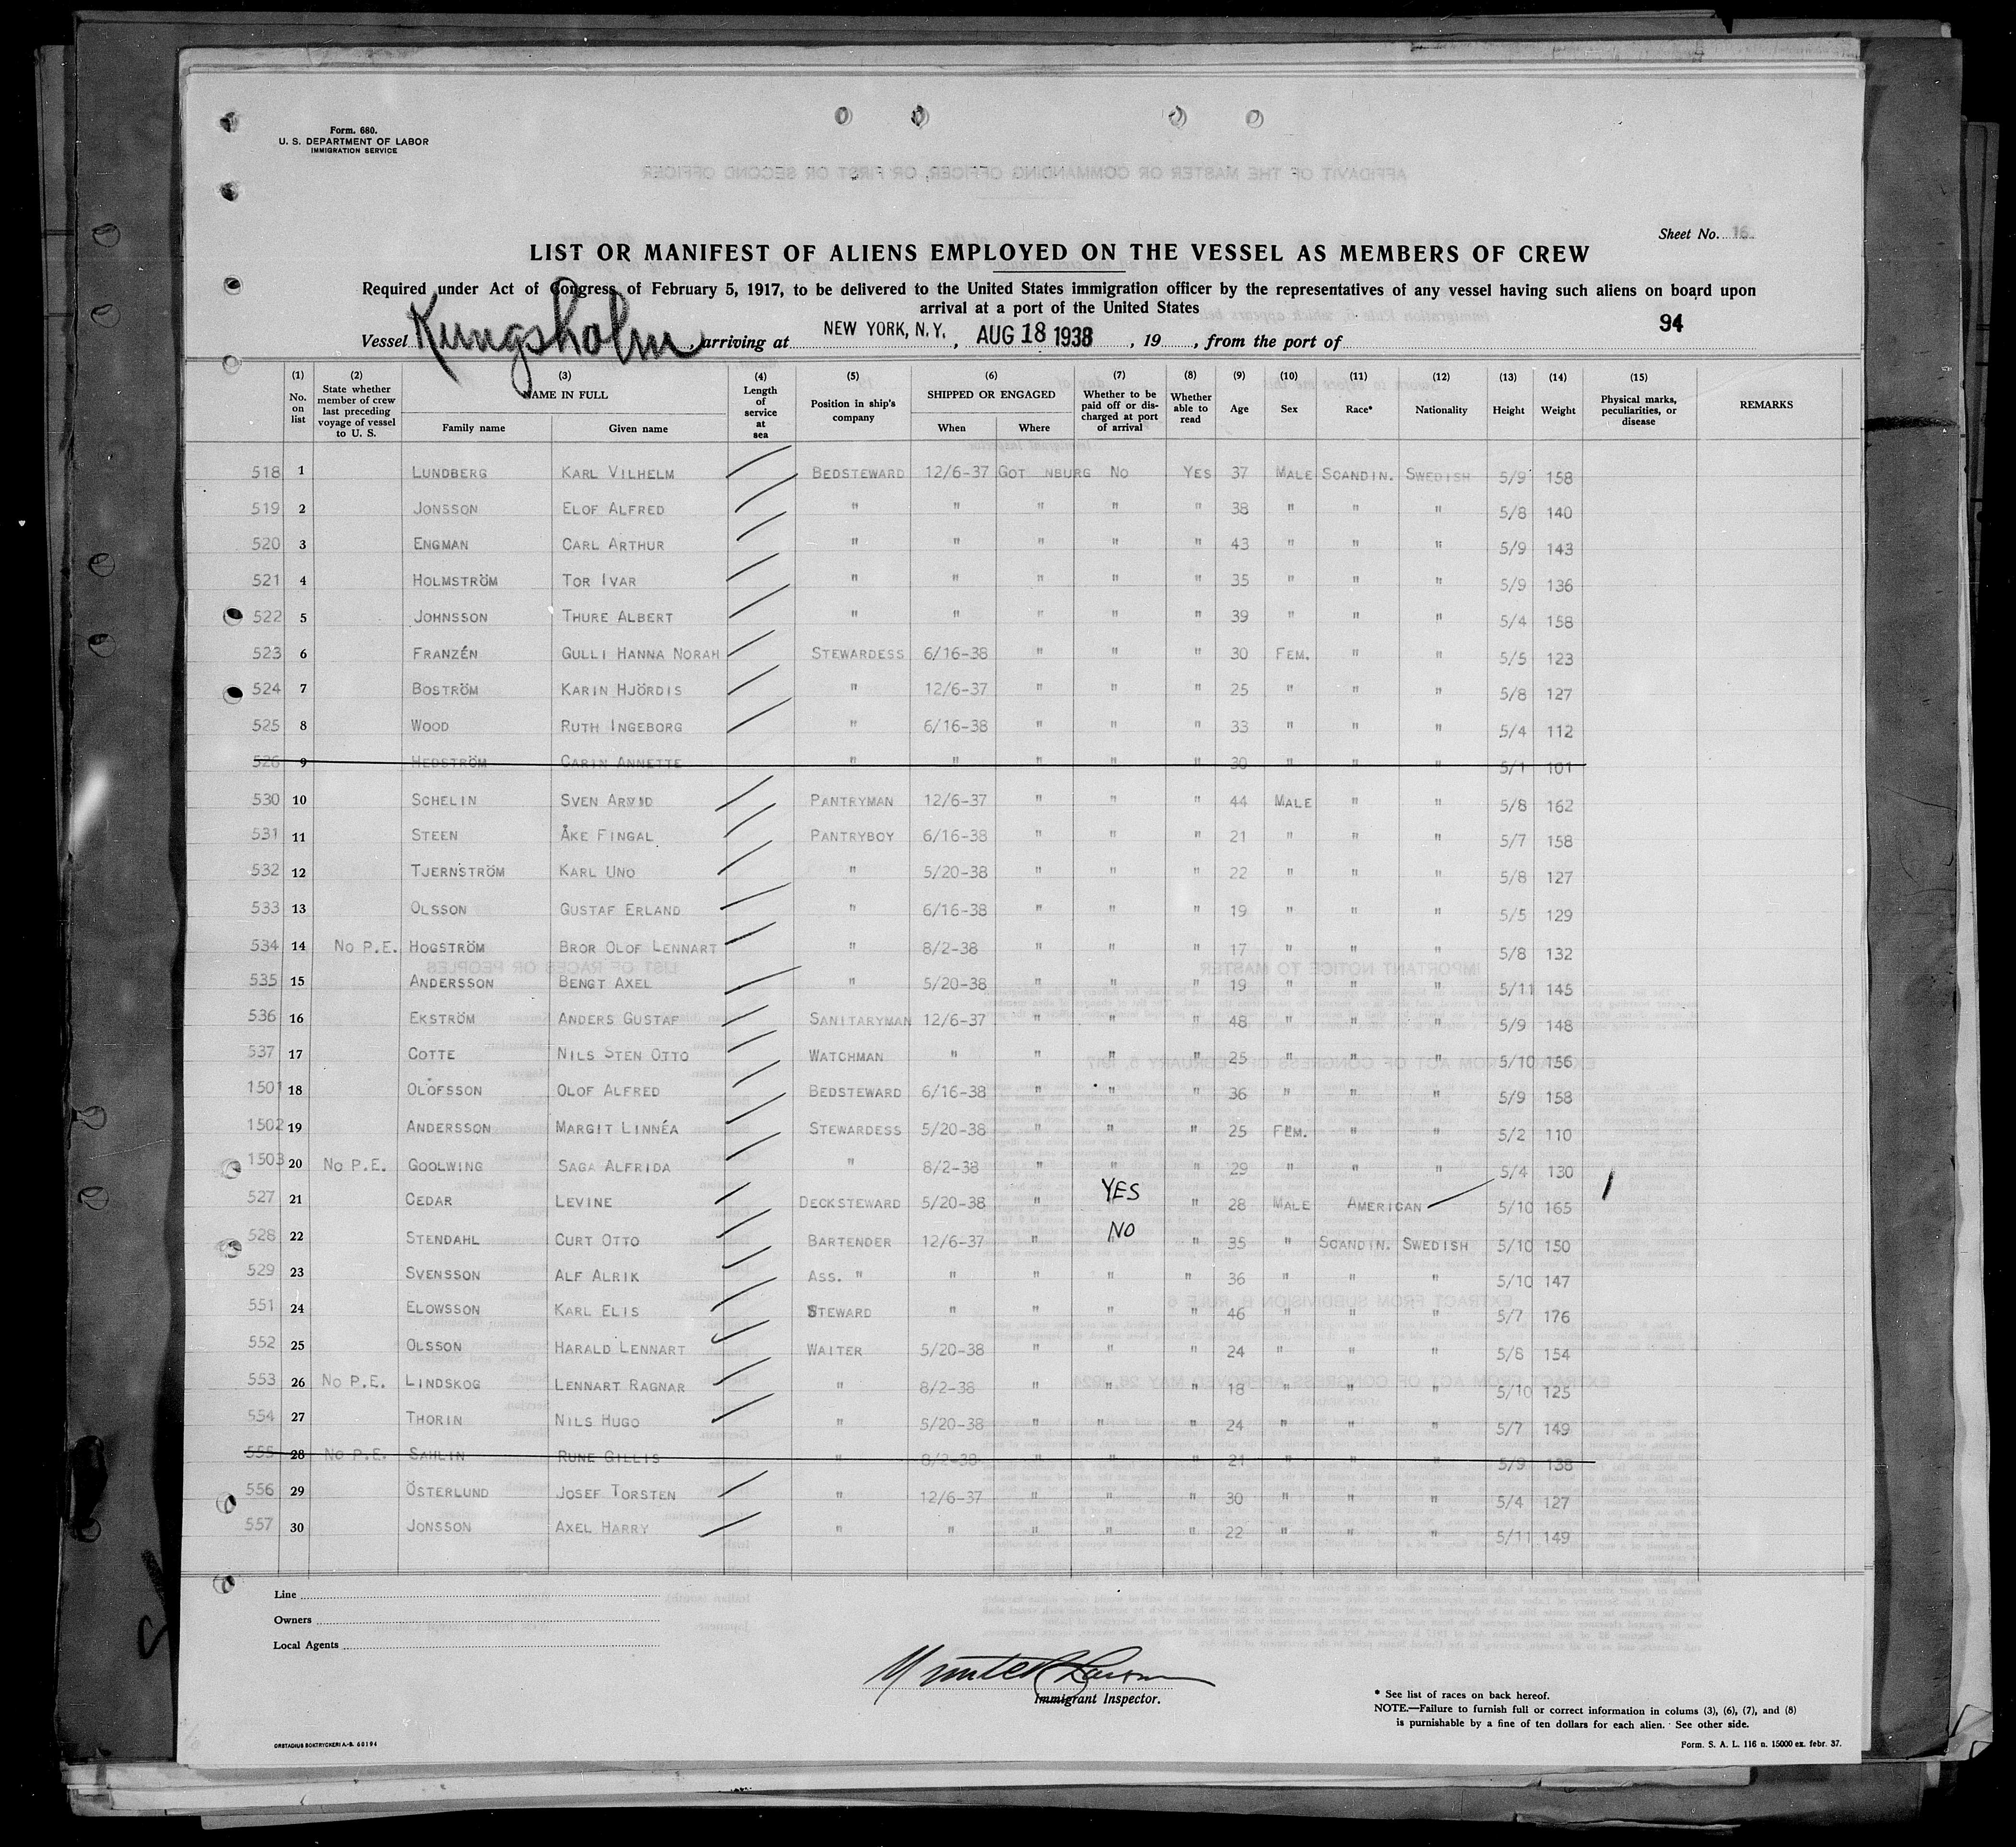 Form. 680.
U. S. DEPARTMENT OF LABOR
IMMIGRATION SERVICE
Sheet No. 16.
LIST OR MANIFEST OF ALIENS EMPLOYED ON THE VESSEL AS MEMBERS OF CREW
Required under Act of Congress of February 5, 1917, to be delivered to the United States immigration officer by the representatives of any vessel having such aliens on board upon
arrival at a port of the United States
94
Vessel Kungsholm, arriving at NEW YORK, N.Y., AUG 18 1938, 19 , from the port of
(1) No. on list (2) State whether member of crew last preceding voyage of vessel to U. S. (3) NAME IN FULL Family name Given name (4) Length of service at sea (5) Position in ship's company (6) SHIPPED OR ENGAGED When Where (7) Whether to be paid off or discharged at port of arrival (8) Whether able to read (9) Age (10) Sex (11) Race* (12) Nationality (13) Height (14) Weight (15) Physical marks, peculiarities, or disease REMARKS
518 1 LUNDBERG KARL VILHELM BEDSTEWARD 12/6-37 GOT NBURG NO YES 37 MALE SCANDIN. SWEDISH 5/9 158
519 2 JONSSON ELOF ALFRED " " " " " 38 " " " 5/8 140
520 3 ENGMAN CARL ARTHUR " " " " " 43 " " " 5/9 143
521 4 HOLMSTRÖM TOR IVAR " " " " " 35 " " " 5/9 136
522 5 JOHNSSON THURE ALBERT " " " " " 39 " " " 5/4 158
523 6 FRANZÉN GULLI HANNA NORAH STEWARDESS 6/16-38 " " " 30 FEM. " " 5/5 123
524 7 BOSTRÖM KARIN HJÖRDIS " 12/6-37 " " " 25 " " " 5/8 127
525 8 WOOD RUTH INGEBORG " 6/16-38 " " " 33 " " " 5/4 112
526 9 HEDSTRÖM CARIN ANNETTE " " " " " 30 " " " 5/1 101
530 10 SCHELIN SVEN ARVID PANTRYMAN 12/6-37 " " " 44 MALE " " 5/8 162
531 11 STEEN ÅKE FINGAL PANTRYBOY 6/16-38 " " " 21 " " " 5/7 158
532 12 TJERNSTRÖM KARL UNO " 5/20-38 " " " 22 " " " 5/8 127
533 13 OLSSON GUSTAF ERLAND " 6/16-38 " " " 19 " " " 5/5 129
534 14 NO P.E. HOGSTRÖM BROR OLOF LENNART " 8/2-38 " " " 17 " " " 5/8 132
535 15 ANDERSSON BENGT AXEL " 5/20-38 " " " 19 " " " 5/11 145
536 16 EKSTRÖM ANDERS GUSTAF SANITARYMAN 12/6-37 " " " 48 " " " 5/9 148
537 17 COTTE NILS STEN OTTO WATCHMAN " " " " 25 " " " 5/10 156
1501 18 OLOFSSON OLOF ALFRED BEDSTEWARD 6/16-38 " " " 36 " " " 5/9 158
1502 19 ANDERSSON MARGIT LINNÉA STEWARDESS 5/20-38 " " " 25 FEM. " " 5/2 110
1503 20 NO P.E. GOOLWING SAGA ALFRIDA " 8/2-38 " " " 29 " " " 5/4 130
527 21 CEDAR LEVINE DECKSTEWARD 5/20-38 " YES " 28 MALE AMERICAN 5/10 165
528 22 STENDAHL CURT OTTO BARTENDER 12/6-37 " NO " 35 " SCANDIN. SWEDISH 5/10 150
529 23 SVENSSON ALF ALRIK ASS. " " " " " 36 " " " 5/10 147
551 24 ELOWSSON KARL ELIS STEWARD " " " " 46 " " " 5/7 176
552 25 OLSSON HARALD LENNART WAITER 5/20-38 " " " 24 " " " 5/8 154
553 26 NO P.E. LINDSKOG LENNART RAGNAR " 8/2-38 " " " 18 " " " 5/10 125
554 27 THORIN NILS HUGO " 5/20-38 " " " 24 " " " 5/7 149
555 28 NO P.E. SAHLIN RUNE GILLIS " 8/2-38 " " " 21 " " " 5/9 138
556 29 ÖSTERLUND JOSEF TORSTEN " 12/6-37 " " " 30 " " " 5/4 127
557 30 JONSSON AXEL HARRY " " " " " 22 " " " 5/11 149
Line
Owners
Local Agents
Immigrant Inspector.
* See list of races on back hereof.
NOTE.—Failure to furnish full or correct information in colums (3), (6), (7), and (8)
is punishable by a fine of ten dollars for each alien. See other side.
ORSTADIUS BOKTRYCKERI A.-B. 60194
Form. S. A. L. 116 n. 15000 ex. febr. 37.